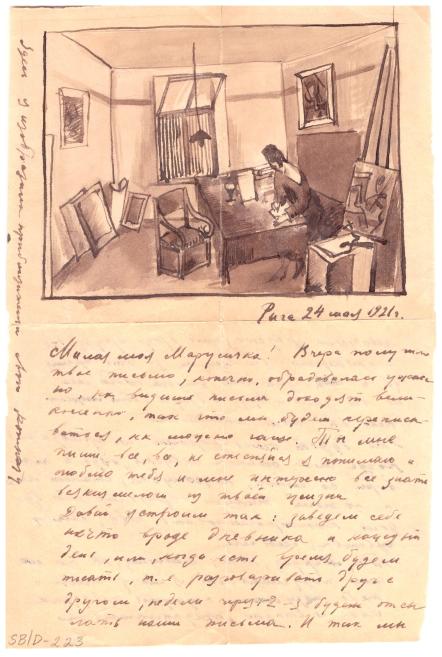 Рига 24 мая 1921 г.
Милая моя Марусичка! Вчера получила
твое письмо, конечно, обрадовалась ужасно
но, видишь письма доходят вели-
колепно, так что мы будем переписы-
ваться, как можно чаще. Ты мне
пиши все, все, не стесняйся я понимаю и
люблю тебя и мне интересно все знать
из твоей жизни
Давай устроим так: заведем себе
нечто вроде дневника и каждый
день, или, когда есть время, будем
писать, т.е. разговаривать друг с
другом, недели через 2-3 будем отсы-
лать наши письма. И так мы
Здесь я изобразила приблизительно мою комнату
SB/D-223